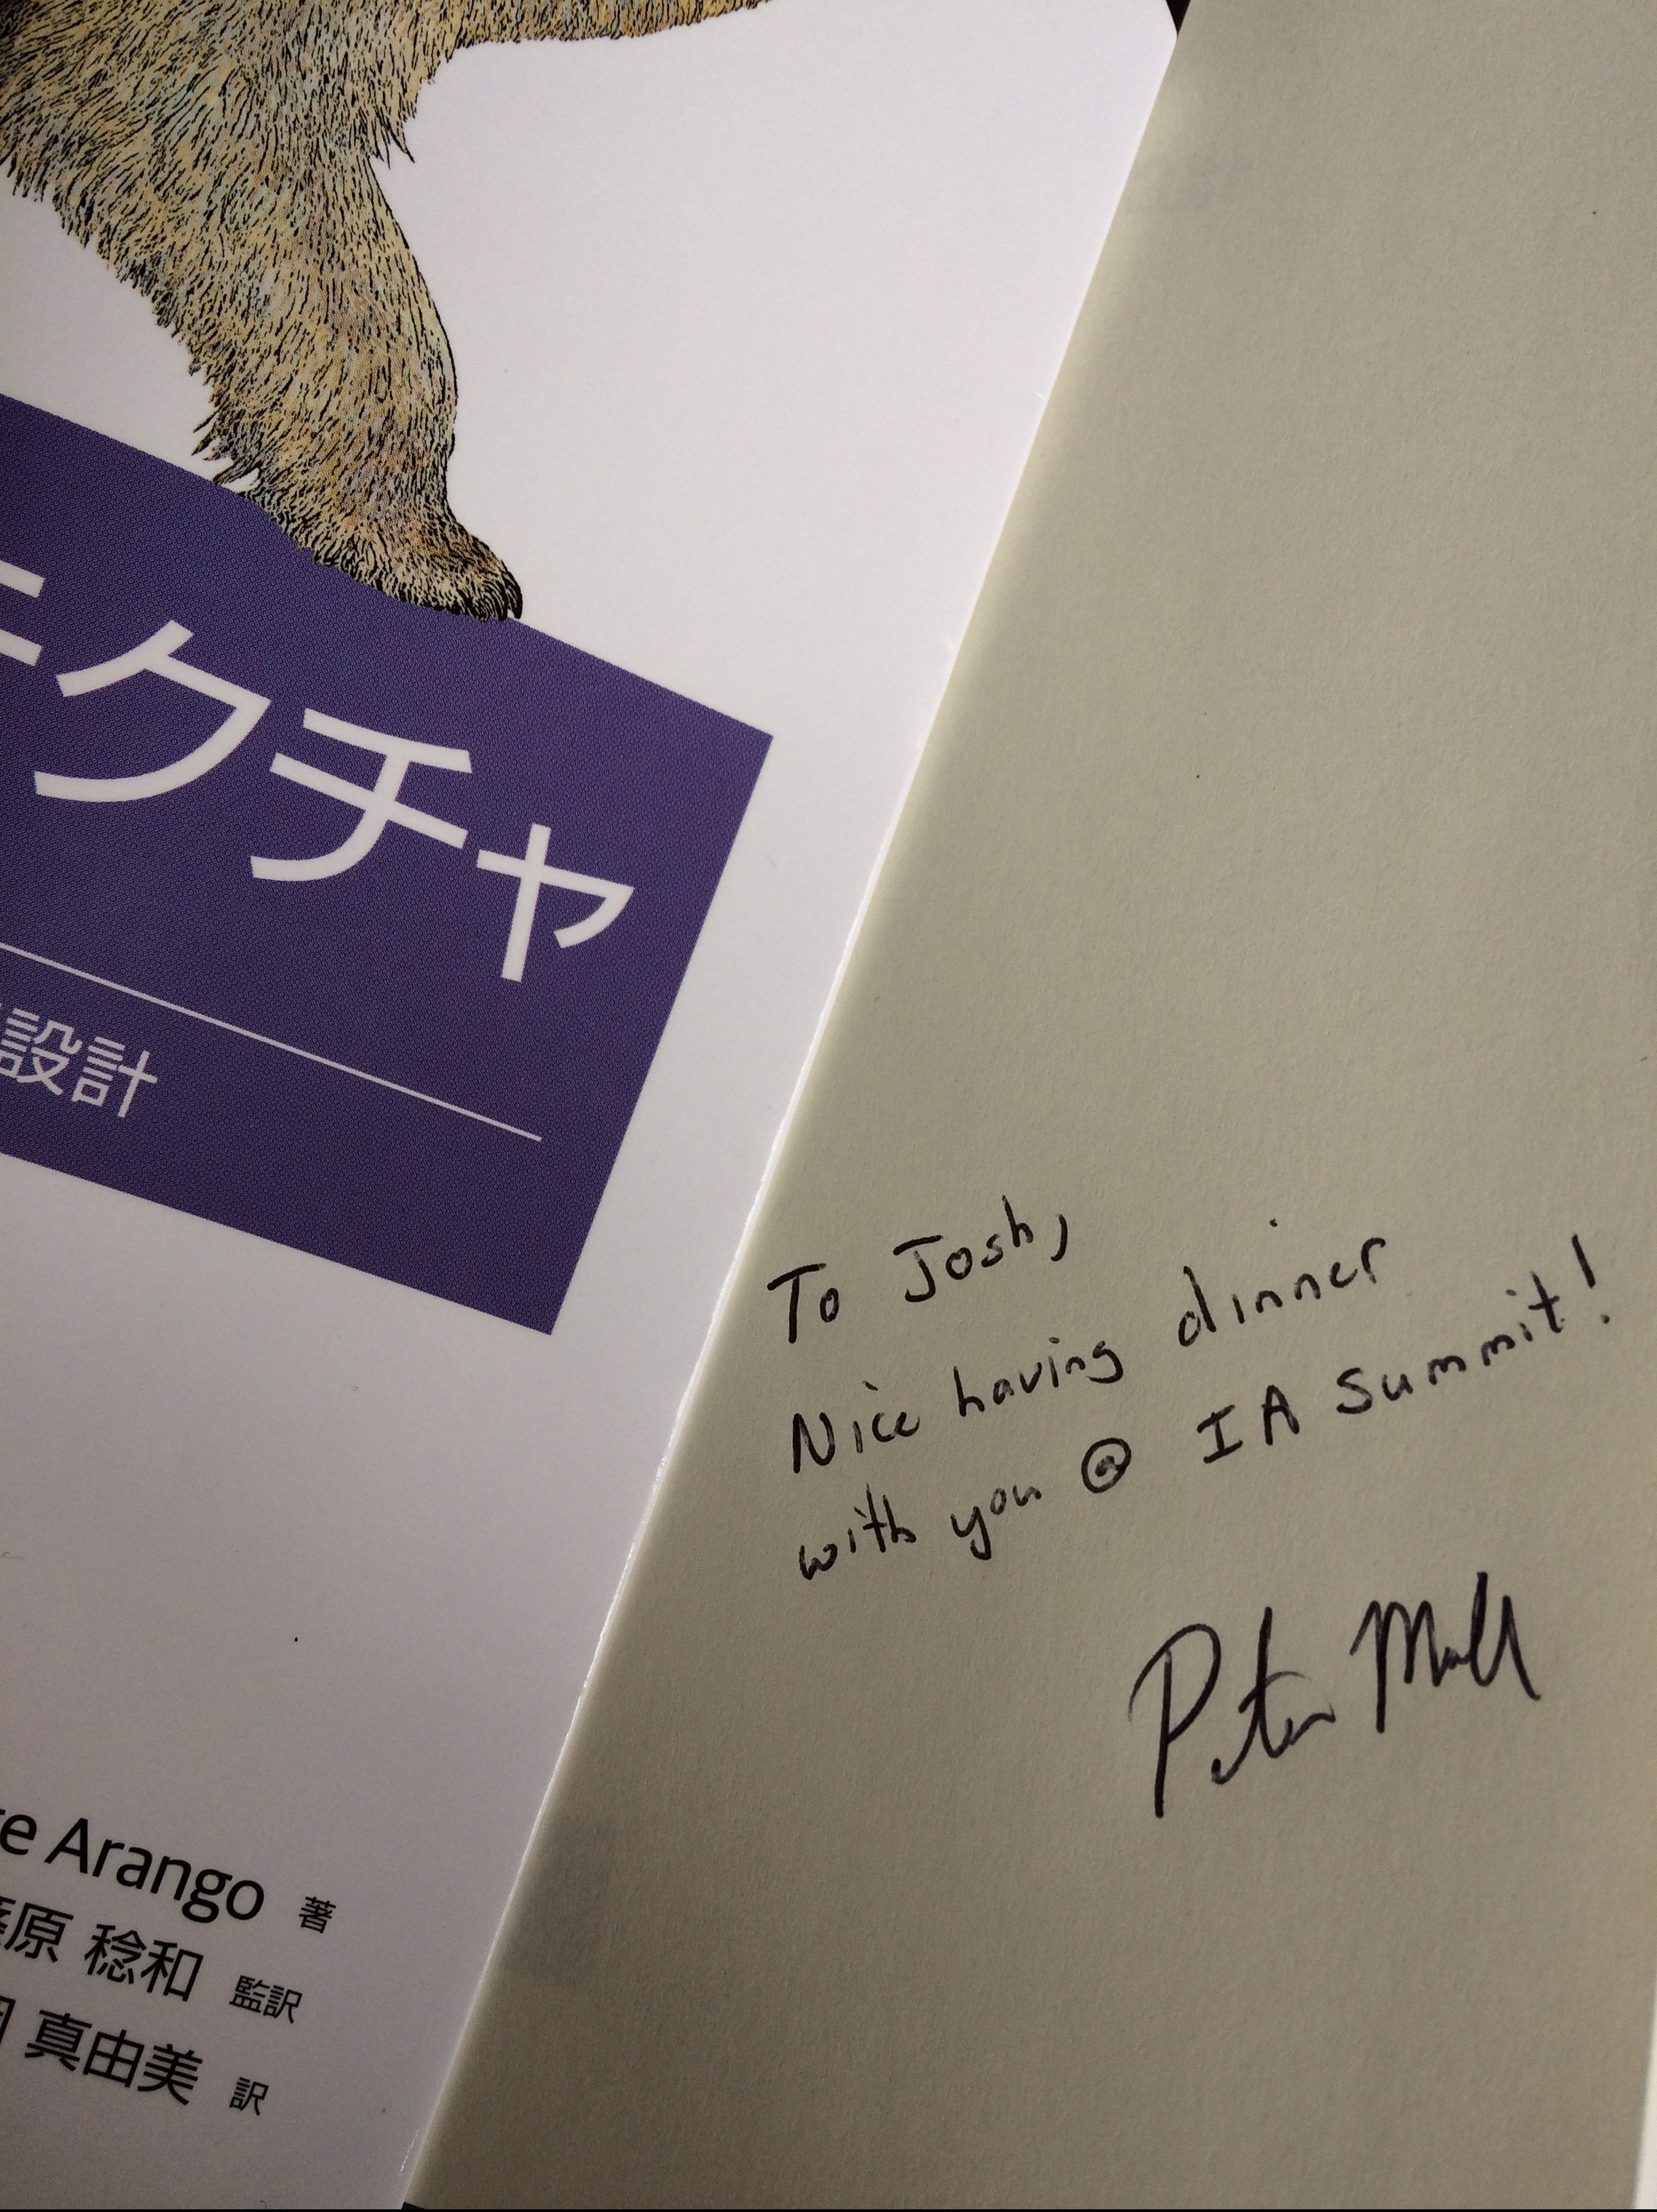 クチャ
設計
Arango 著
原 稔和 監訳
真由美 訳
To Josh,
Nice having dinner
with you @ IA Summit!
Peter